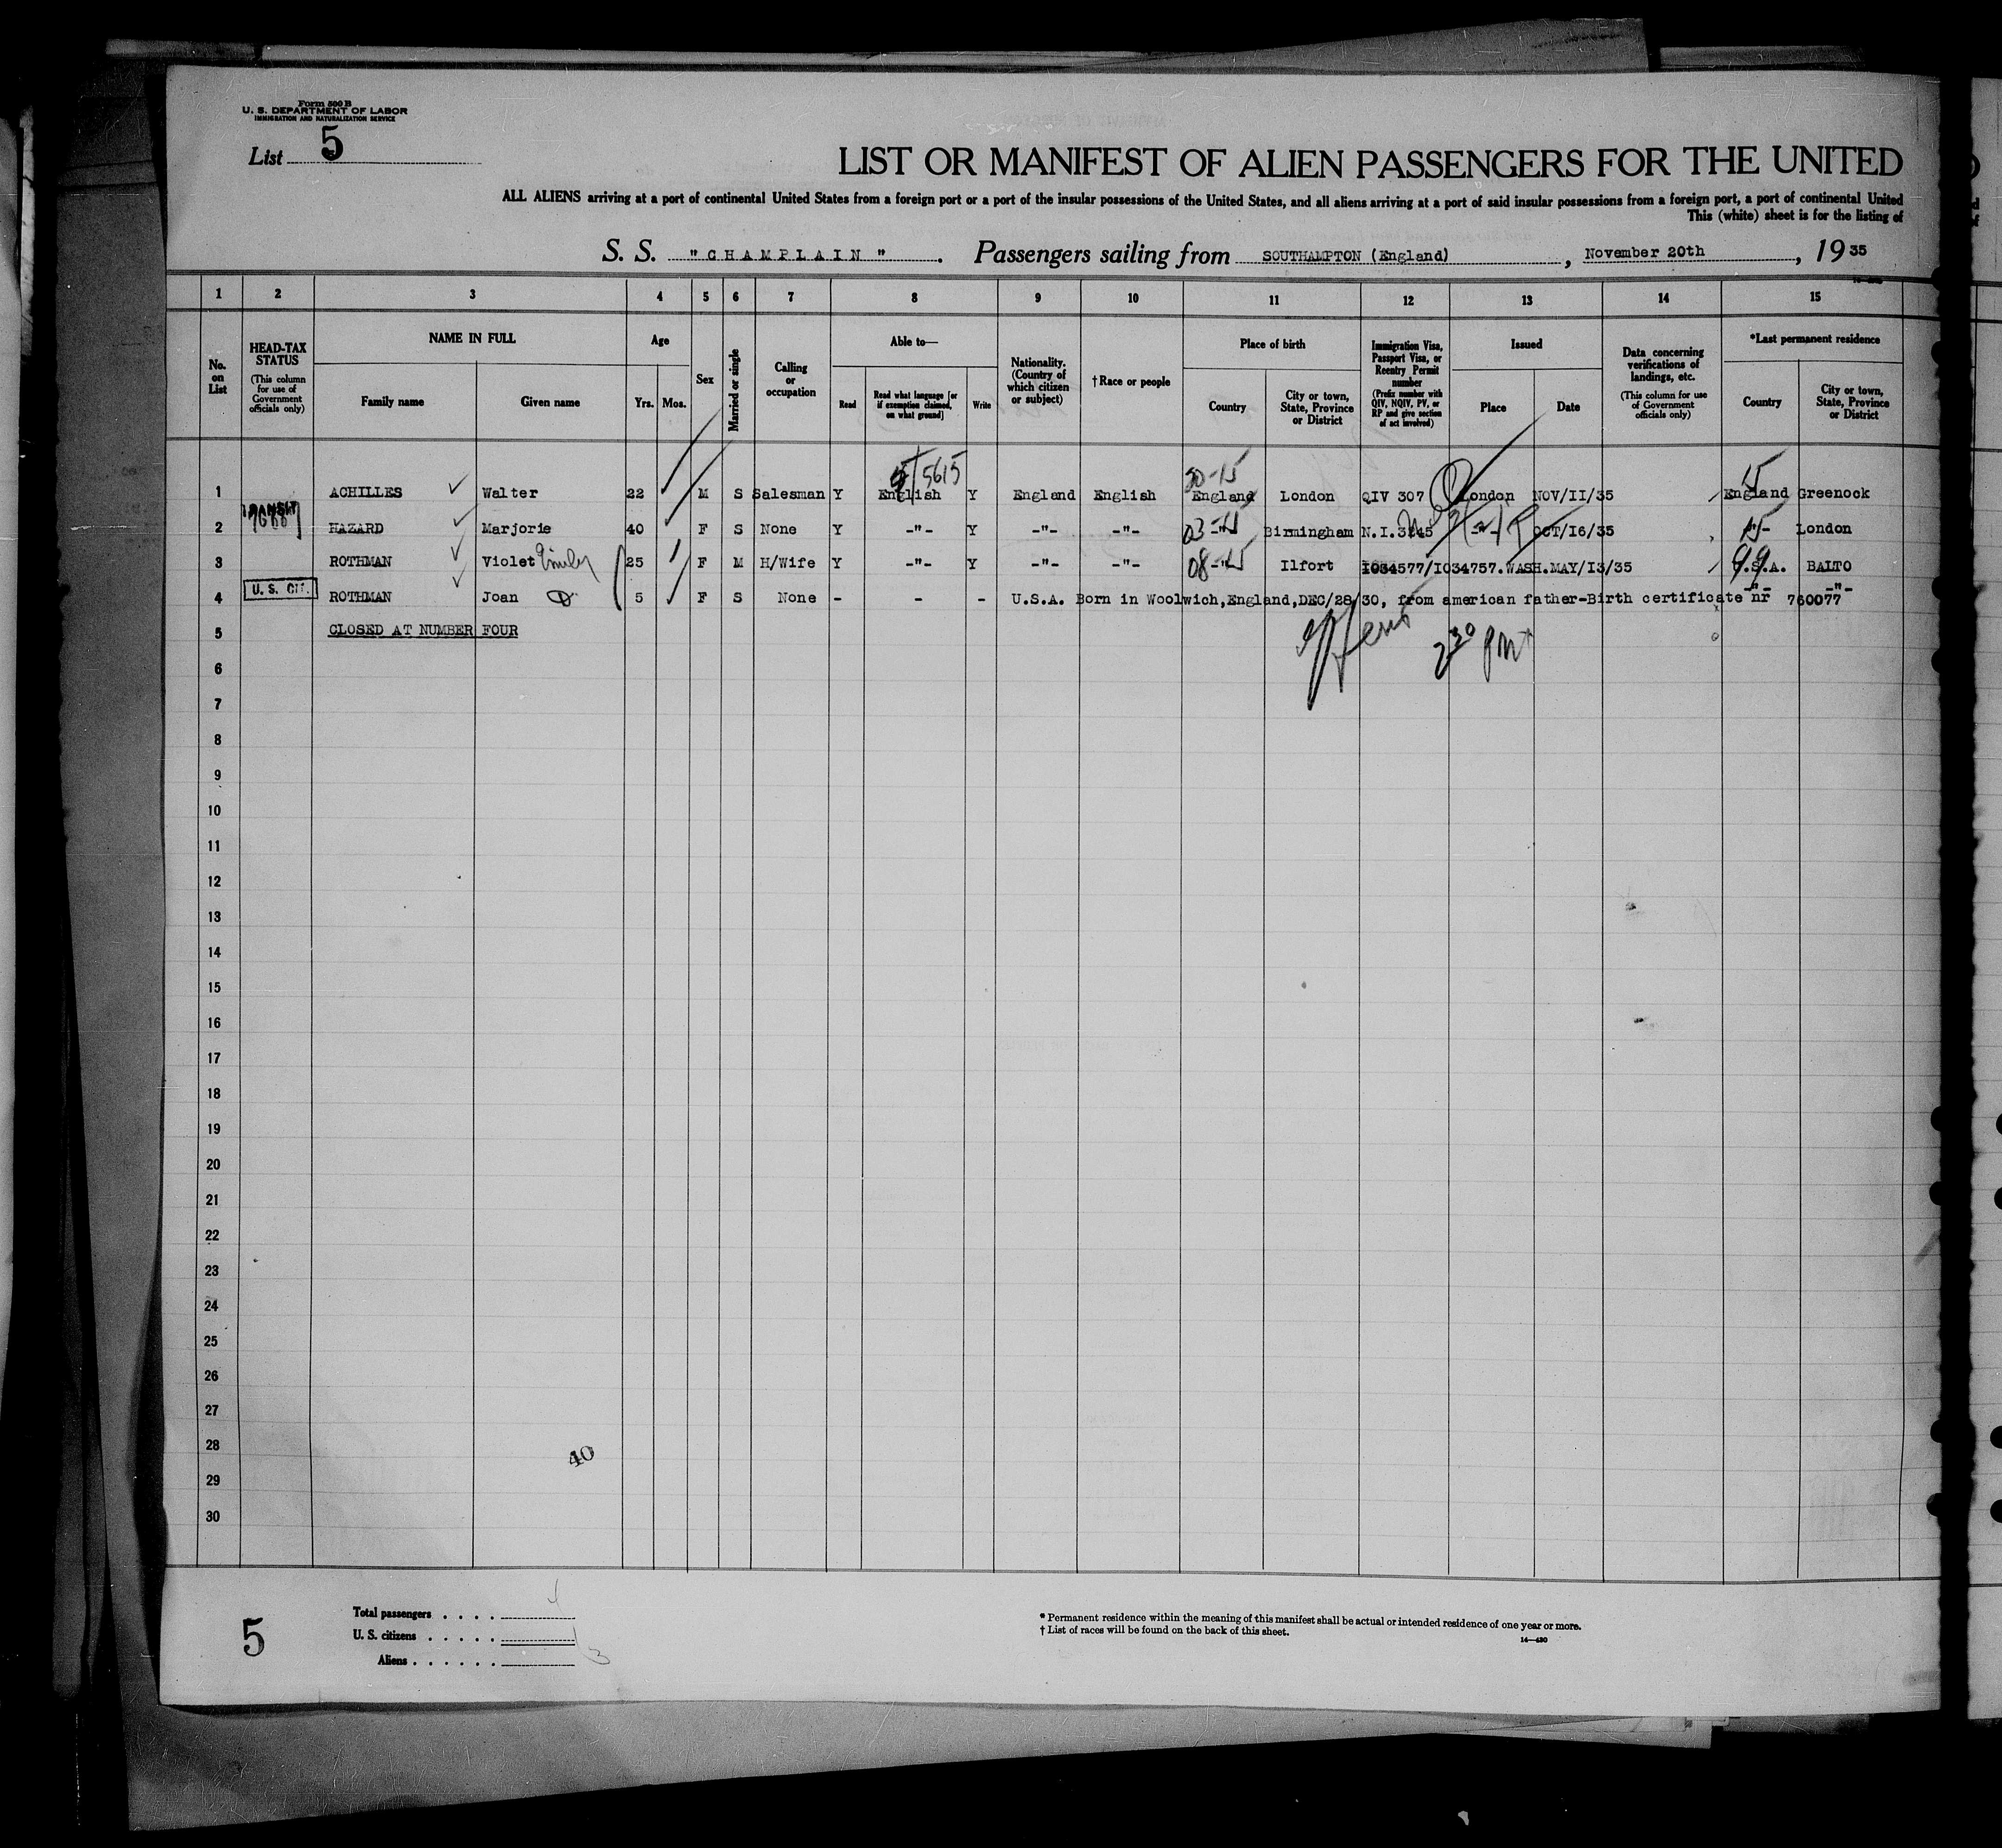 Form 500 B
U. S. DEPARTMENT OF LABOR
IMMIGRATION AND NATURALIZATION SERVICE
List 5
LIST OR MANIFEST OF ALIEN PASSENGERS FOR THE UNITED
ALL ALIENS arriving at a port of continental United States from a foreign port or a port of the insular possessions of the United States, and all aliens arriving at a port of said insular possessions from a foreign port, a port of continental United
This (white) sheet is for the listing of
S. S. "CHAMPLAIN". Passengers sailing from SOUTHAMPTON (England), November 20th, 19 35
1 2 3 4 5 6 7 8 9 10 11 12 13 14 15
No. on List
HEAD-TAX STATUS (This column for use of Government officials only)
NAME IN FULL
Family name Given name
Age
Yrs. Mos.
Sex
Married or single
Calling or occupation
Able to—
Read Read what language [or if exemption claimed, on what ground] Write
Nationality. (Country of which citizen or subject)
† Race or people
Place of birth
Country City or town, State, Province or District
Immigration Visa, Passport Visa, or Reentry Permit number (Prefix number with QIV, NQIV, PV, or RP and give section of act involved)
Issued
Place Date
Data concerning verifications of landings, etc. (This column for use of Government officials only)
*Last permanent residence
Country City or town, State, Province or District
5615 15
1 ACHILLES Walter 22 M S Salesman Y English Y England English England London QIV 307 London NOV/II/35 England Greenock
TRANSIT
2 HAZARD Marjorie 40 F S None Y -"- Y -"- -"- -"- Birmingham N.I.3245 -"- OCT/I6/35 -"- London
3 ROTHMAN Violet Emily 25 F M H/Wife Y -"- Y -"- -"- -"- Ilfort I034577/I034757.WASH.MAY/I3/35 U.S.A. BALTO
U. S. CIT.
4 ROTHMAN Joan 5 F S None - - - U.S.A. Born in Woolwich,England,DEC/28/30, from american father-Birth certificate nr 760077 -"- -"-
5 CLOSED AT NUMBER FOUR
2 30 PM
6
7
8
9
10
11
12
13
14
15
16
17
18
19
20
21
22
23
24
25
26
27
28
40
29
30
5
Total passengers . . . . 4
U. S. citizens . . . . . 1
Aliens . . . . . . 3
* Permanent residence within the meaning of this manifest shall be actual or intended residence of one year or more.
† List of races will be found on the back of this sheet.
14—430